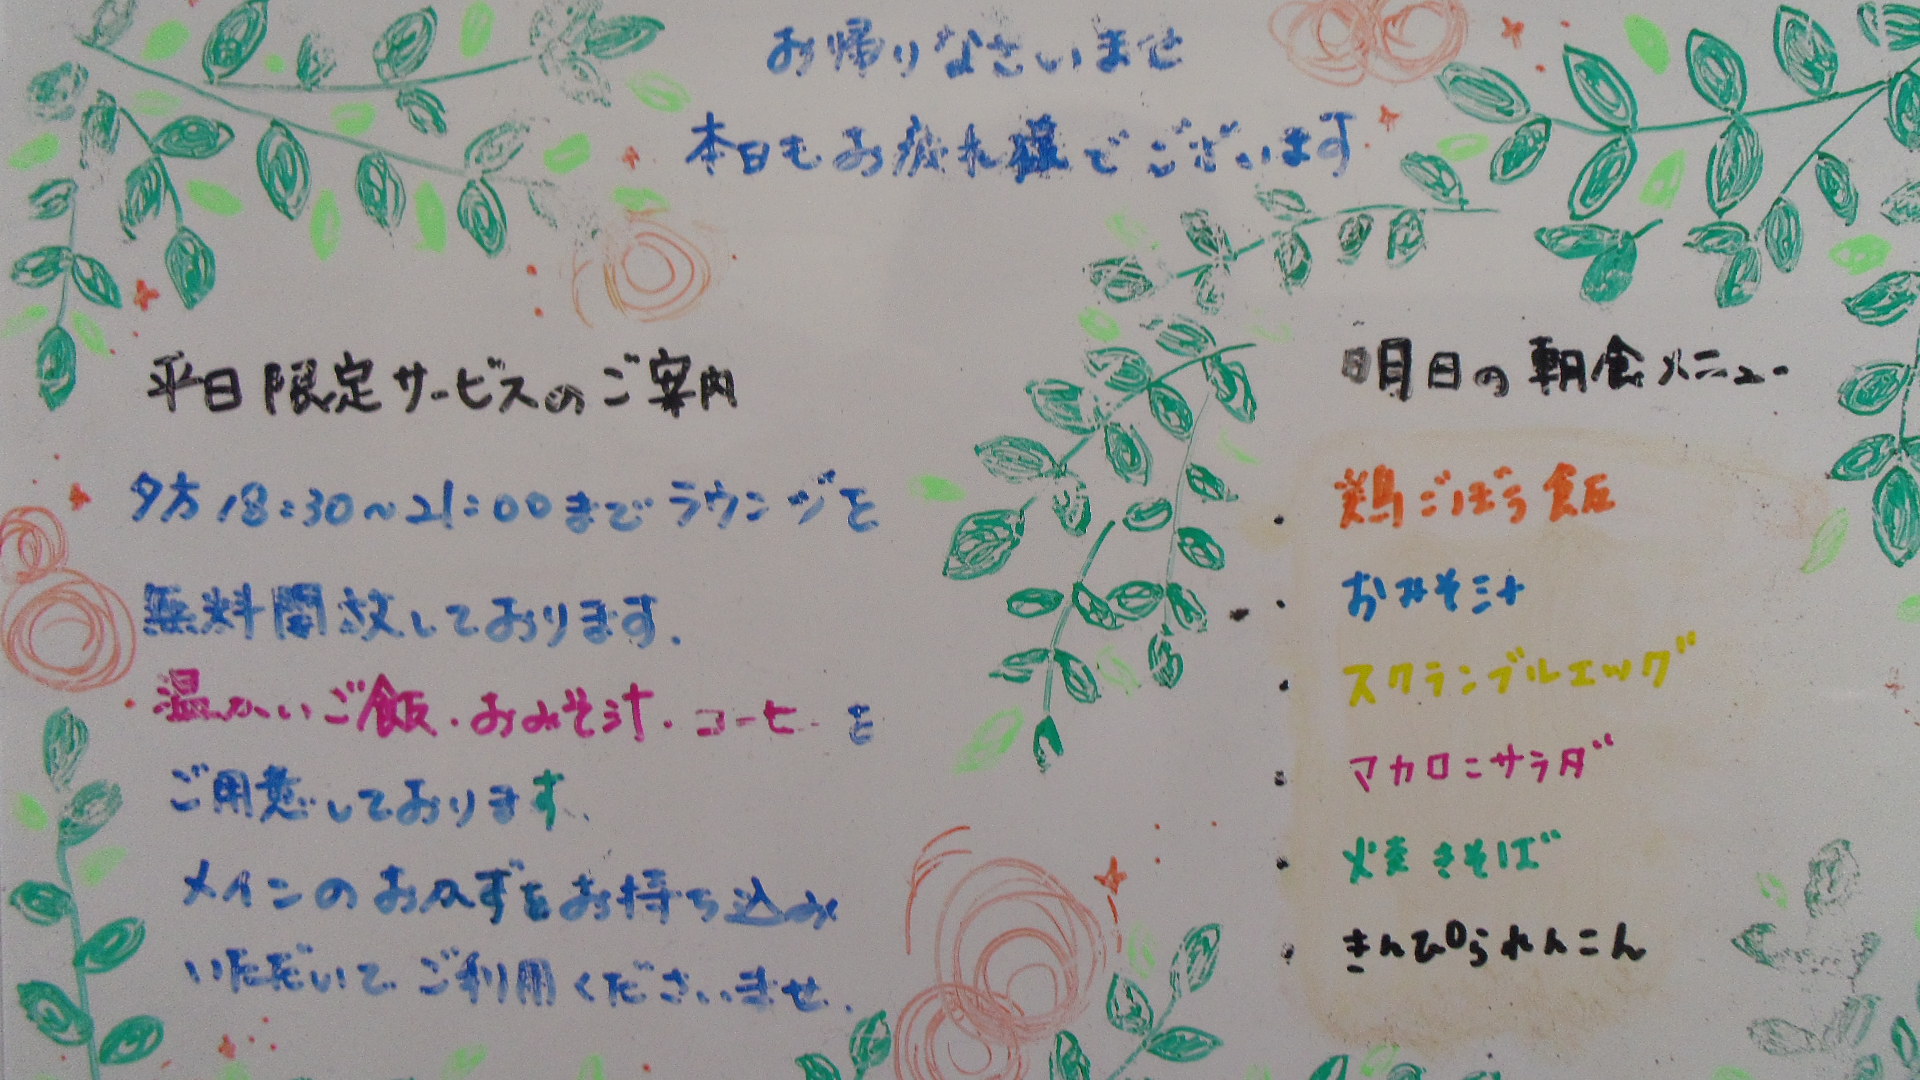 お帰りなさいませ
本日もお疲れ様でございます
平日限定サービスのご案内
夕方18:30～21:00までラウンジを
無料開放しております.
温かいご飯・おみそ汁・コーヒーを
ご用意しております.
メインのおかずをお持ち込み
いただいてご利用くださいませ.
明日の朝食メニュー
・鶏ごぼう飯
・おみそ汁
・スクランブルエッグ
・マカロニサラダ
・焼きそば
・きんぴられんこん